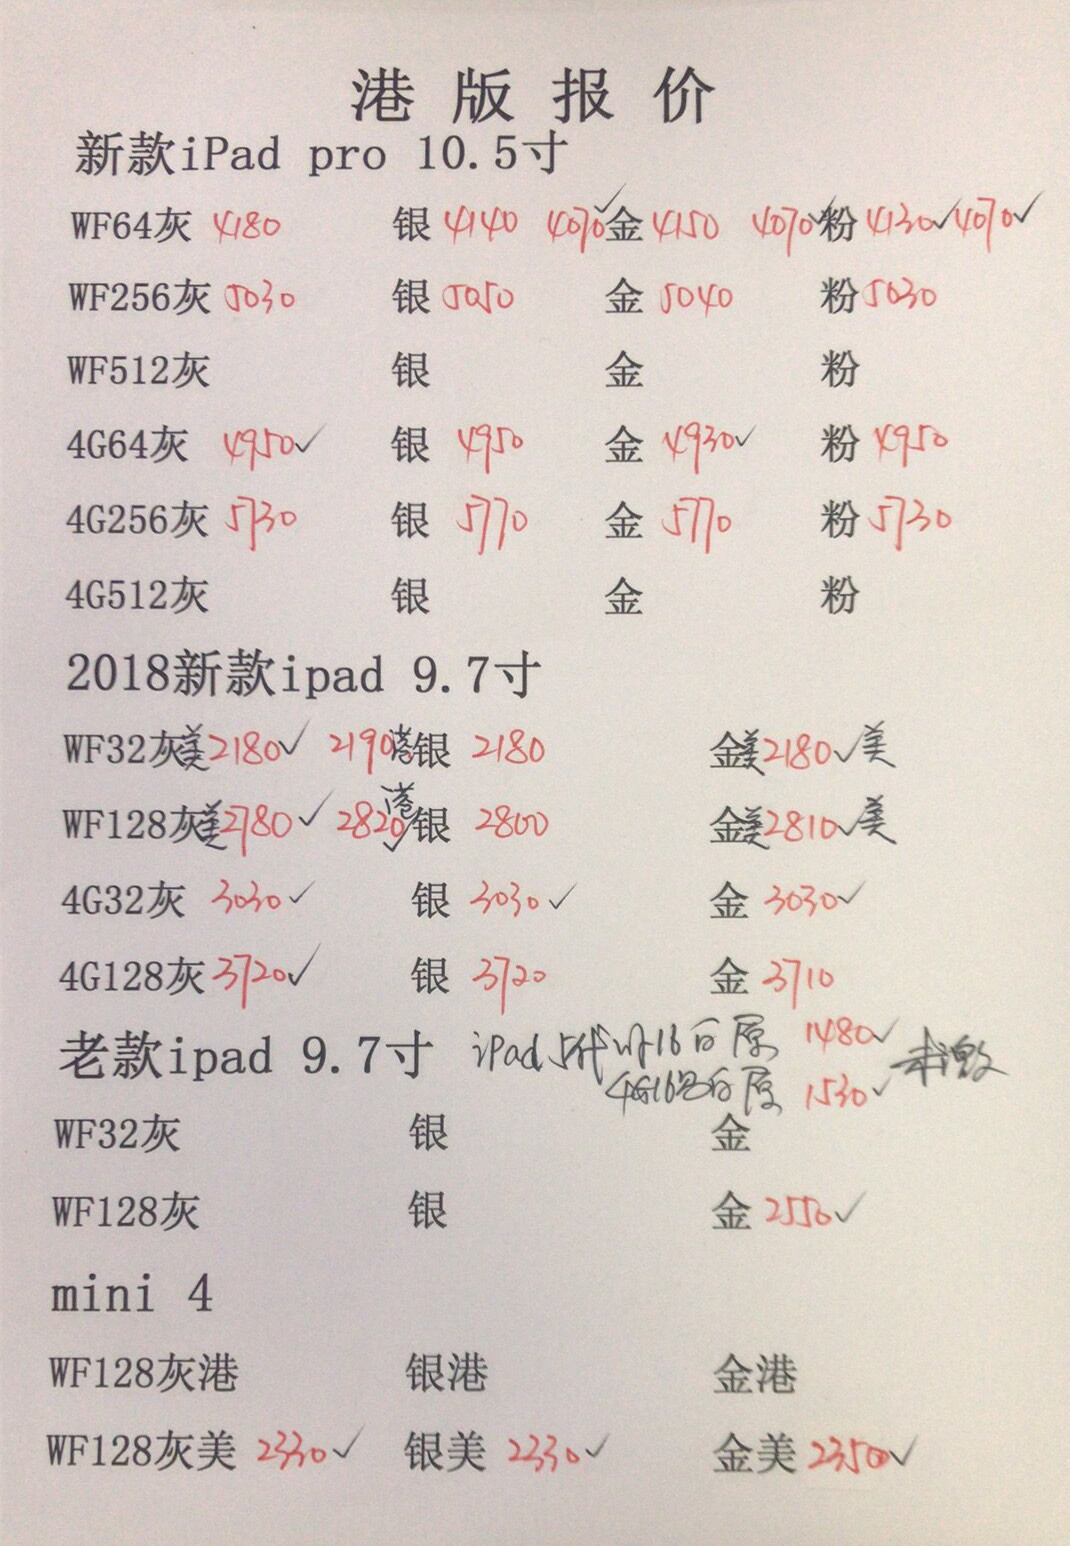 港版报价
新款iPad pro 10.5寸
WF64灰 4180 银 4140 4070✓ 金 4150 4070✓ 粉 4130✓ 4070✓
WF256灰 5030 银 5050 金 5040 粉 5030
WF512灰 银 金 粉
4G64灰 4950✓ 银 4950 金 4930✓ 粉 4950
4G256灰 5730 银 5770 金 5770 粉 5730
4G512灰 银 金 粉
2018新款ipad 9.7寸
WF32灰 美 2180✓ 2190 港 银 2180 金 美 2180✓ 美
WF128灰 美 2780✓ 2820 港✓ 银 2800 金 美 2810✓ 美
4G32灰 3030✓ 银 3030✓ 金 3030✓
4G128灰 3720✓ 银 3720 金 3710
老款ipad 9.7寸 iPad 5代 wf16 白 原 1480✓ 未激
4G16 白 原 1530✓
WF32灰 银 金
WF128灰 银 金 2550✓
mini 4
WF128灰港 银港 金港
WF128灰美 2330✓ 银美 2330✓ 金美 2350✓